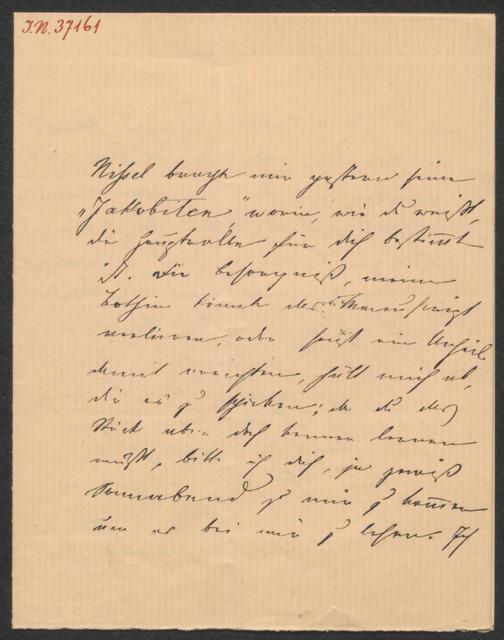 I.N. 37161
Nissel brachte mir gestern seine
„Jakobiten“ worin, wie du weißt,
die Hauptrolle für dich bestimmt
ist. Die Besorgniß, meine
Bothin könnte das Manuscript
verlieren, oder sonst ein Unheil
damit anrichten, hält mich ab,
dir es zu schicken; da du das
Stück aber doch kennen lernen
mußt, bitte ich dich, ja gewiß
Sonnabend zu mir zu kommen
um es bei mir zu lesen. Ich